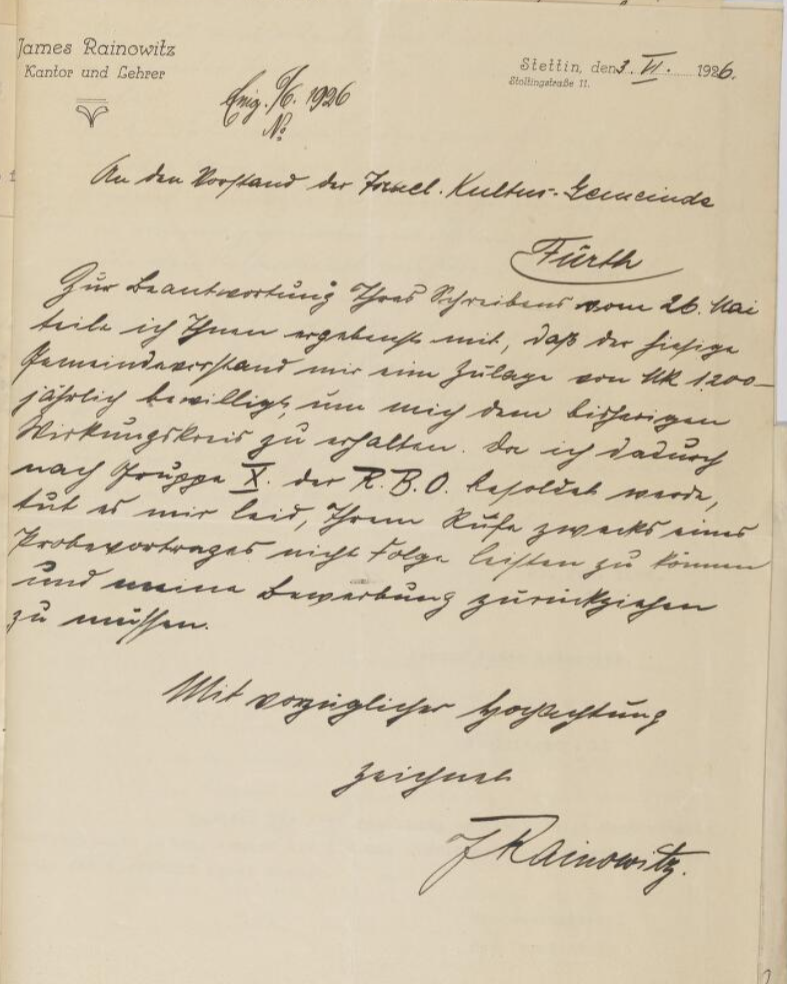 James Rainowitz
Kantor und Lehrer
Stettin, den 3. VI. 1926.
Stoltingstraße 11.
Eing. /6. 1926
No
An den Vorstand der Israel. Kultus-Gemeinde
Fürth
Zur Beantwortung Ihres Schreibens vom 26. Mai
teile ich Ihnen ergebenst mit, daß der hiesige
Gemeindevorstand mir eine Zulage von Mk 1200-
jährlich bewilligt, um mich dem bisherigen
Wirkungskreis zu erhalten. Da ich dadurch
nach Gruppe X. der R.B.O. besoldet werde,
tut es mir leid, Ihrem Rufe zwecks eines
Probevortrages nicht Folge leisten zu können
und meine Bewerbung zurückziehen
zu müssen.
Mit vorzüglicher Hochachtung
zeichnet
J Rainowitz.